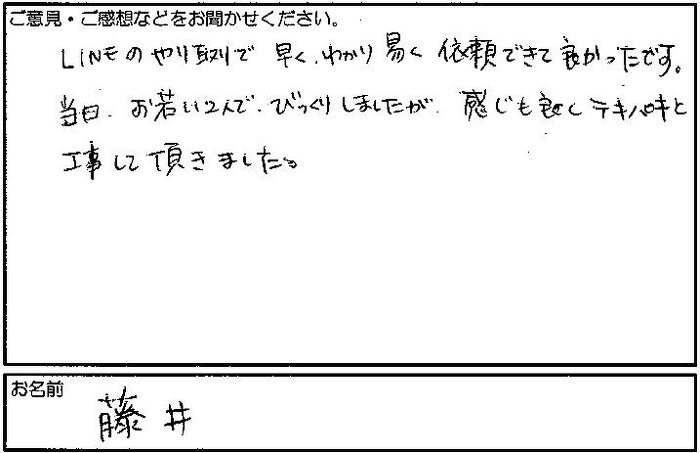 ご意見・ご感想などをお聞かせください。
LINEのやり取りで 早く、わかり易く 依頼できて良かったです。
当日、お若い2人で、びっくりしましたが、感じも良くテキパキと
工事して頂きました。
お名前
藤井